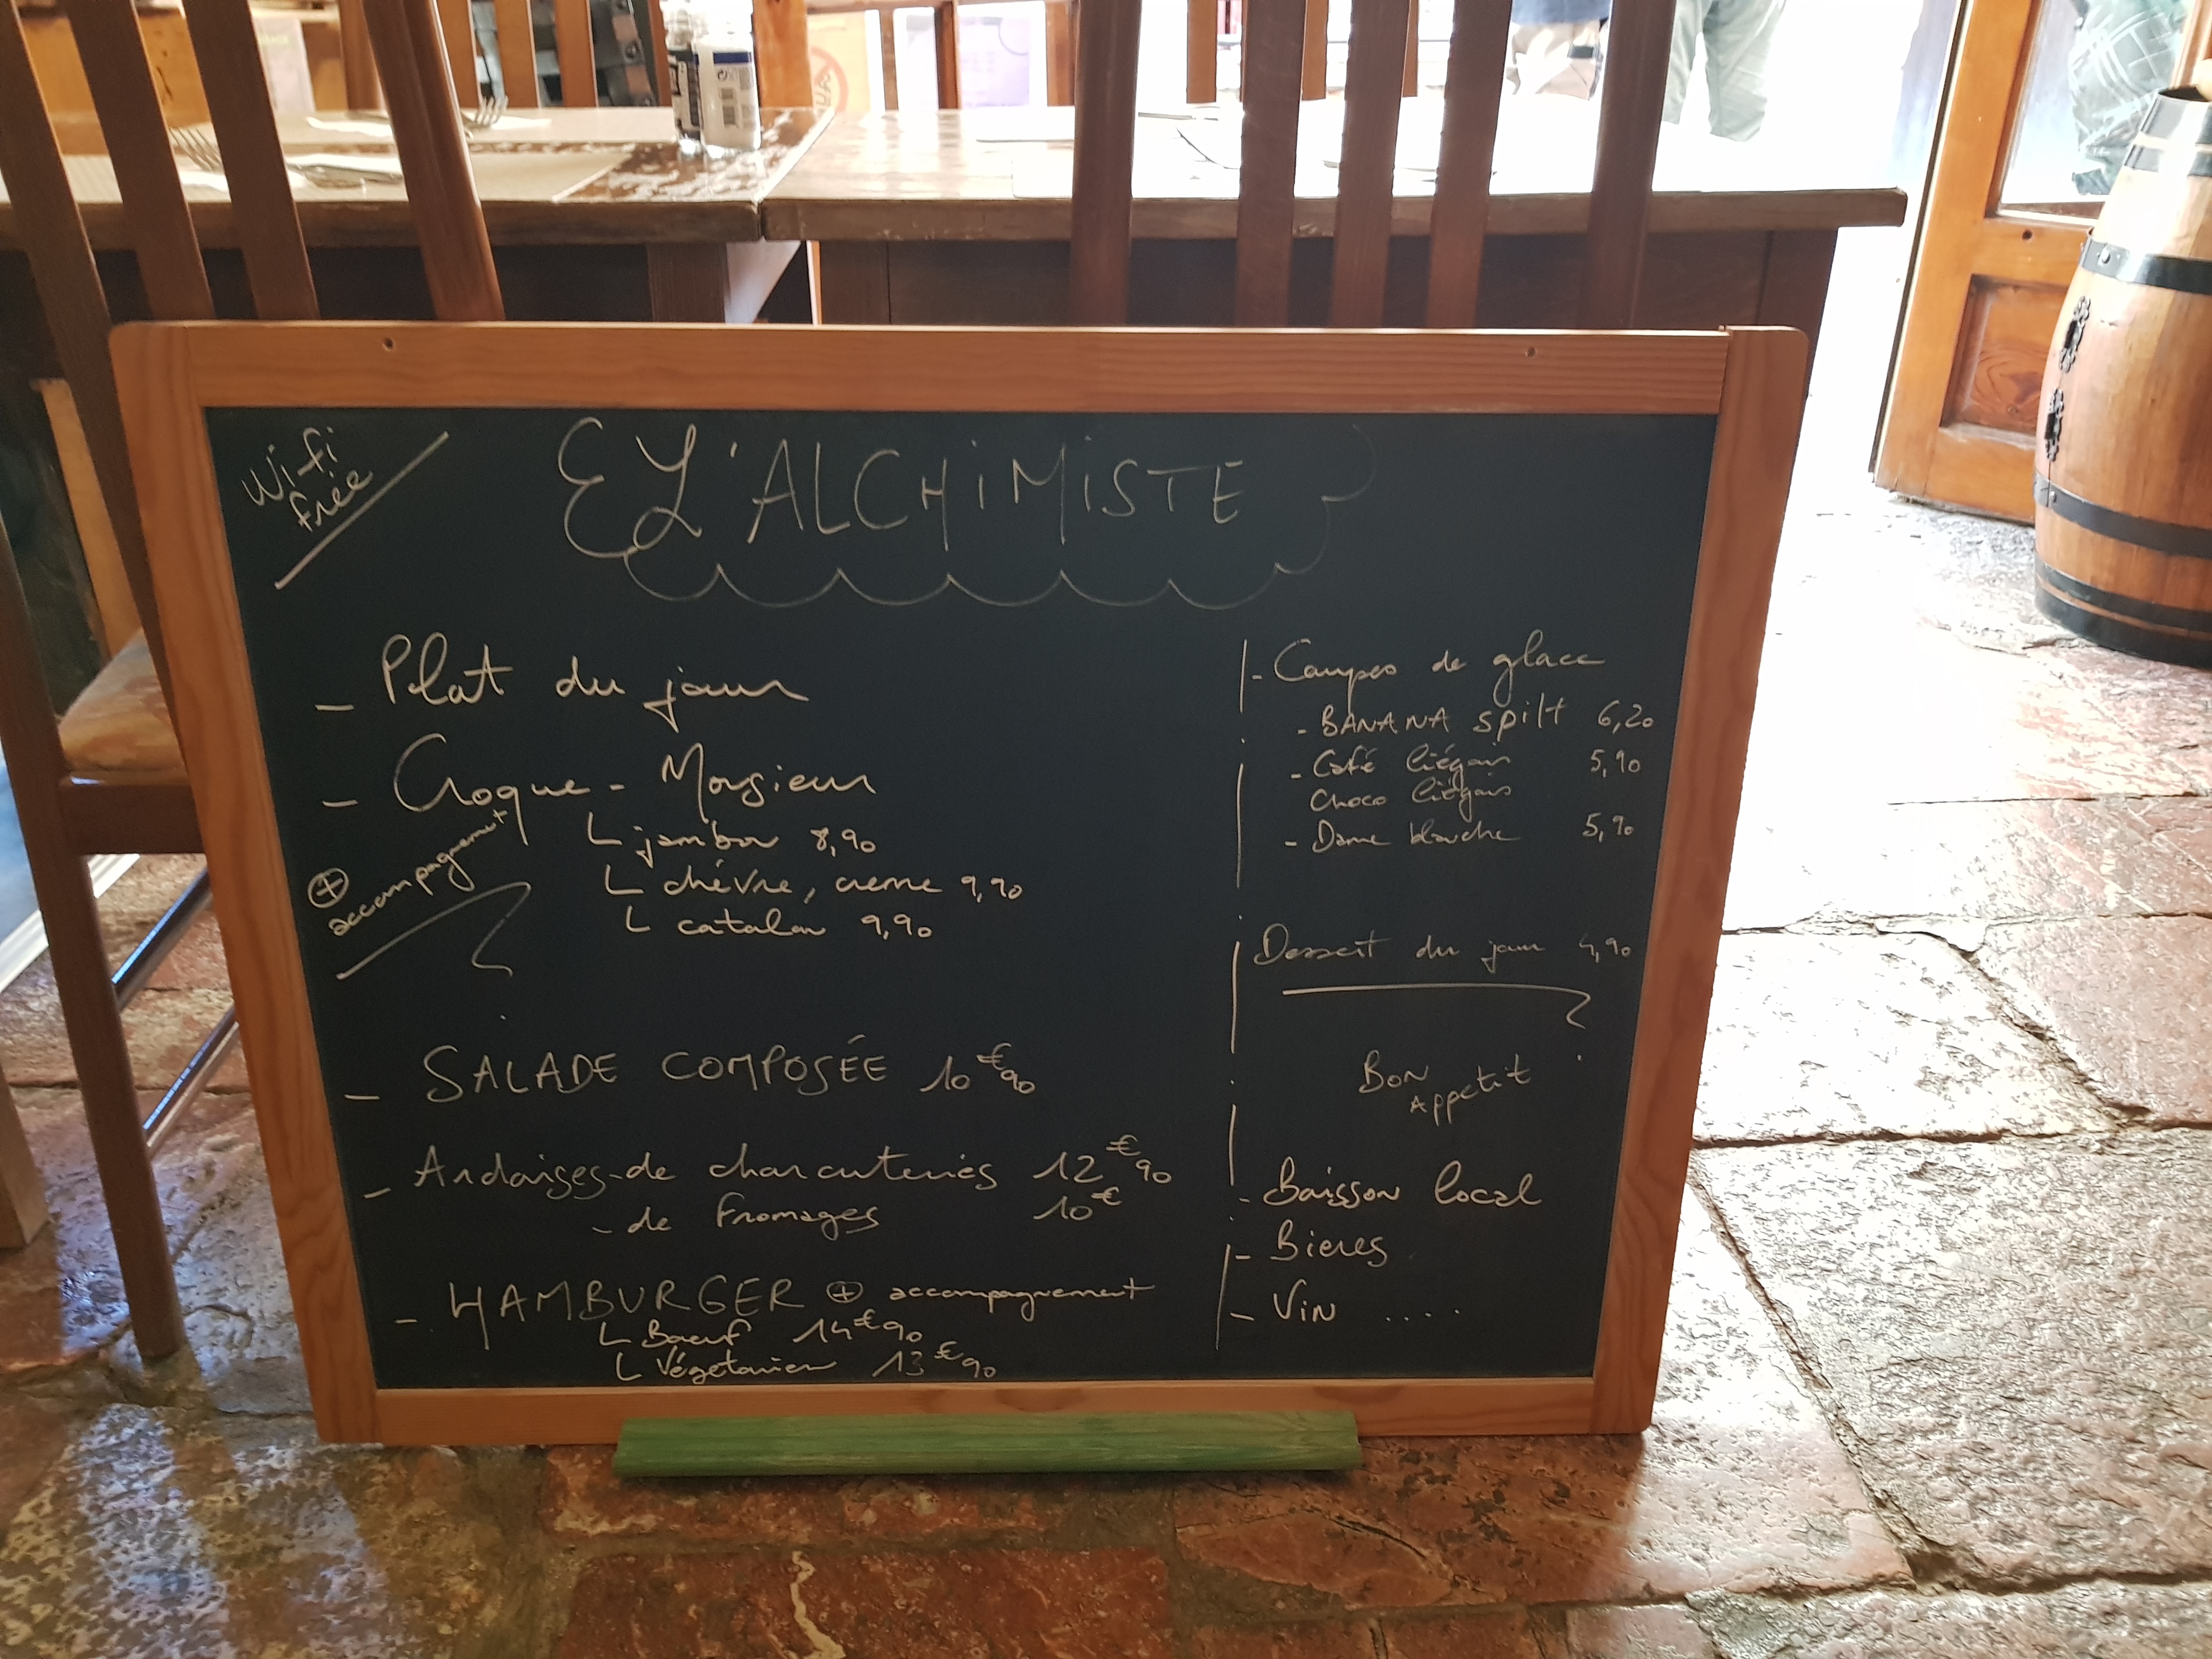 Wi-fi
free
L'ALCHiMiSTE
- Plat du jour
- Croque - Monsieur
⊕ accompagnement
L jambon 8,90
L chèvre, creme 9,90
L catalan 9,90
- SALADE COMPOSÉE 10€90
- Ardoises - de charcuteries 12€90
- de Fromages 10€
- HAMBURGER ⊕ accompagnement
L Boeuf 14€90
L Végetarien 13€90
- Coupes de glace
- BANANA spilt 6,20
- Café liégois 5,90
Choco liégois
- Dame blanche 5,90
Dessert du jour 4,90
BoN
Appetit
- Boisson local
- Bieres
- ViN .....